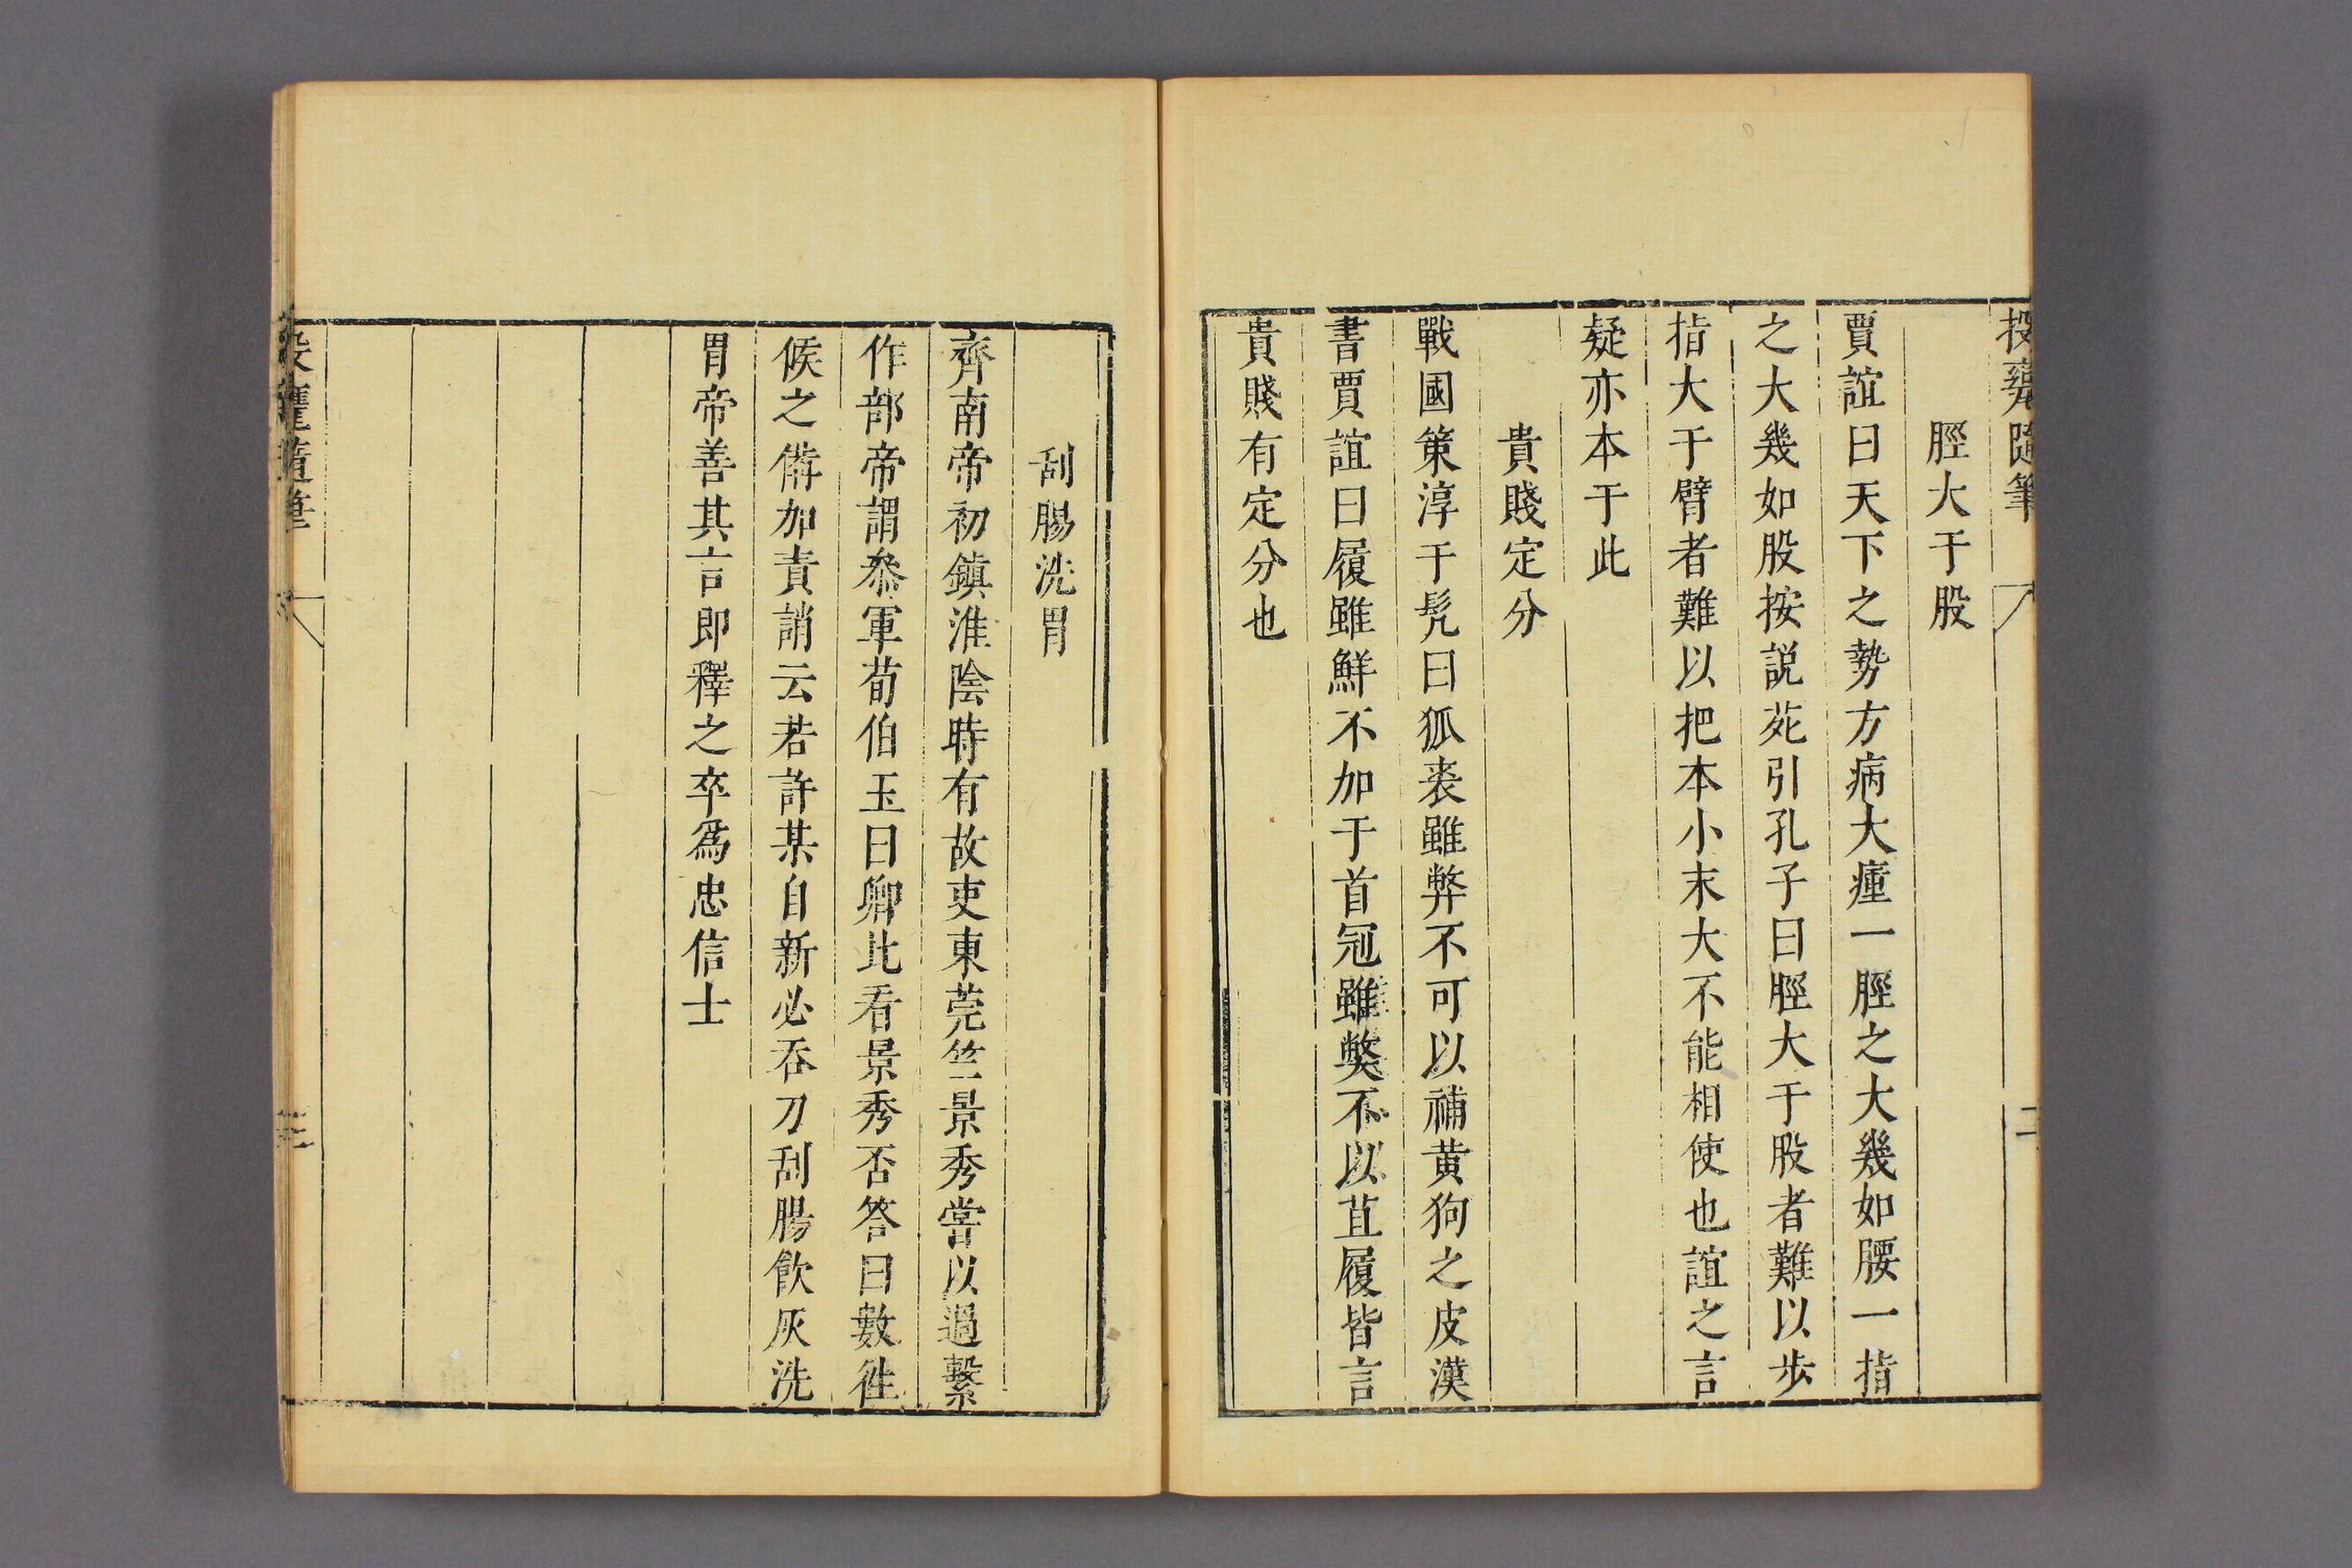 投甕隨筆
二
脛大于股
賈誼曰天下之勢方病大瘇一脛之大幾如腰一指
之大幾如股按説苑引孔子曰脛大于股者難以歩
指大于臂者難以把本小末大不能相使也誼之言
疑亦本于此
貴賤定分
戰國策淳于髠曰狐裘雖弊不可以補黄狗之皮漢
書賈誼曰履雖鮮不加于首冠雖獘不以苴履皆言
貴賤有定分也
刮腸洗胃
齊南帝初鎮淮陰時有故吏東莞竺景秀嘗以過繫
作部帝謂叅軍荀伯玉曰卿比看景秀否答曰數徃
候之備加責誚云若許某自新必吞刀刮腸飲灰洗
胃帝善其言即釋之卒爲忠信士
投甕隨筆
三